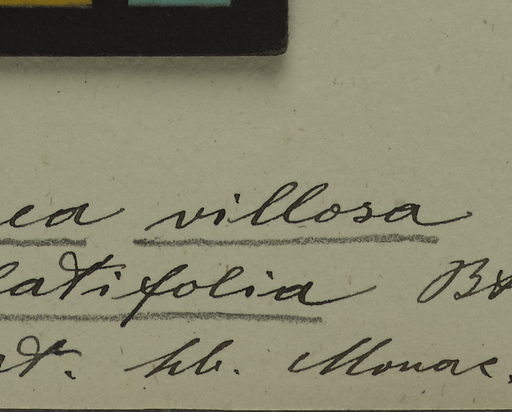 ea villosa
latifolia
hb. Monac.